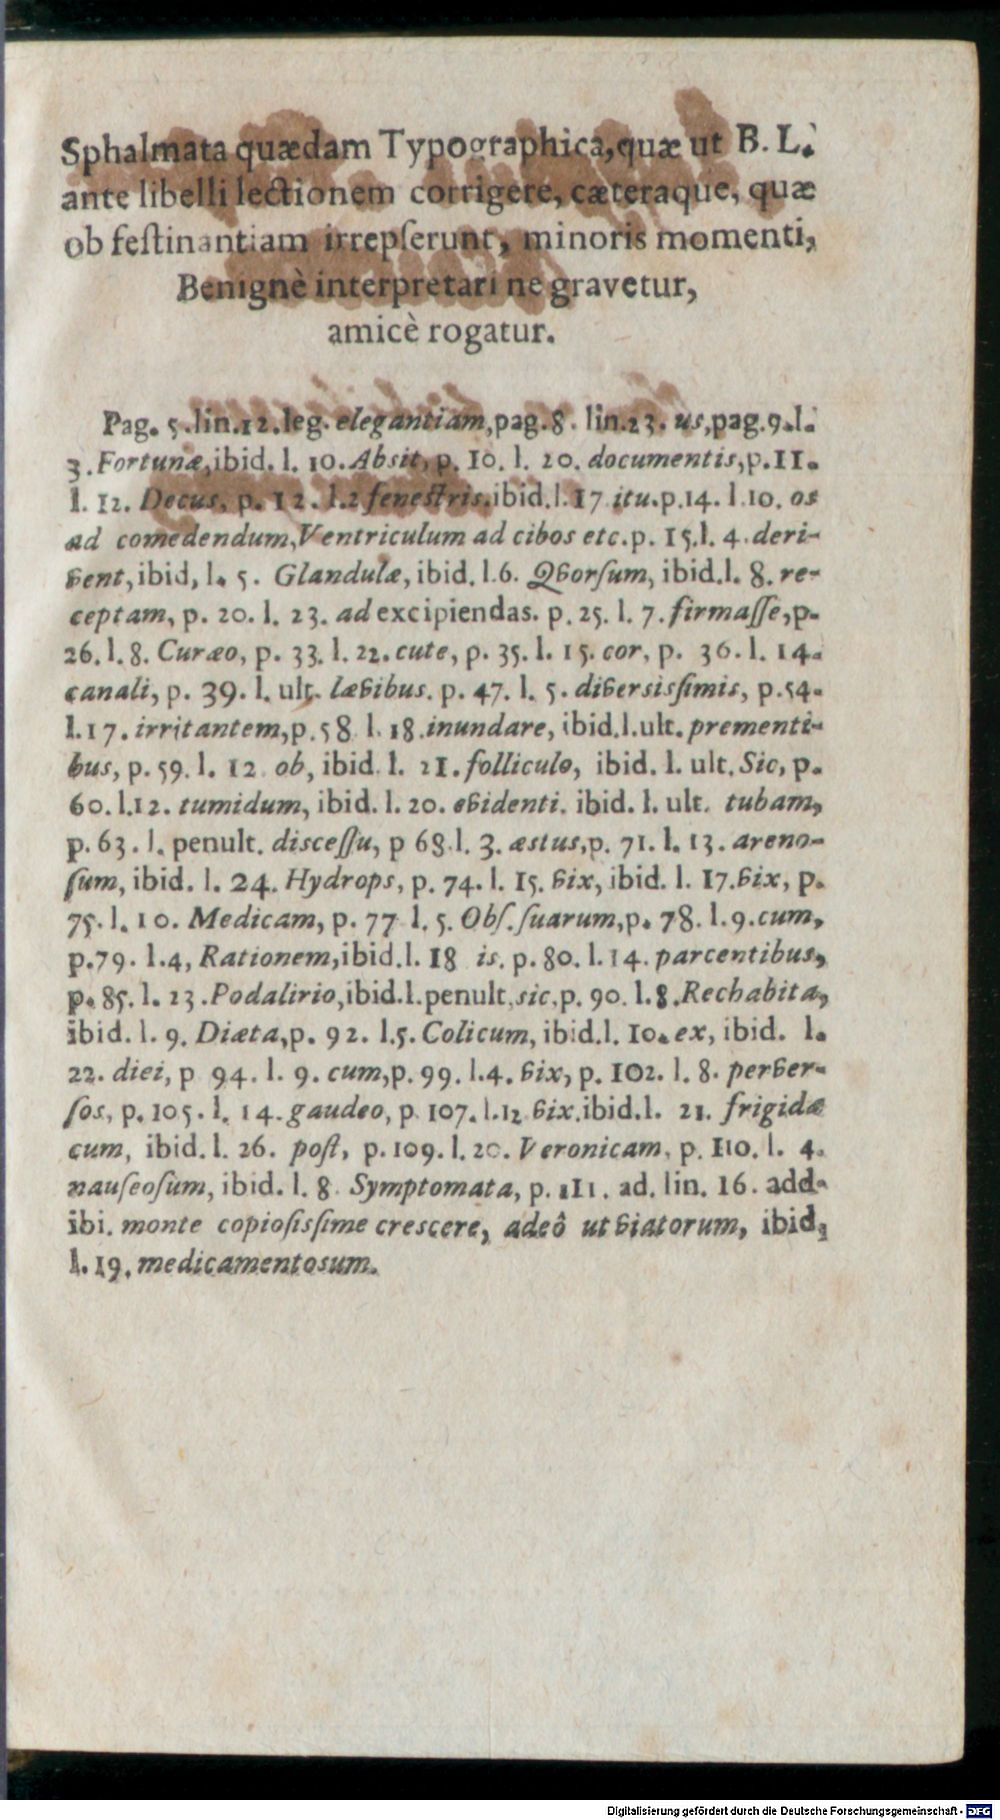 Sphalmata quædam Typographica, quæ ut B. L.
ante libelli lectionem corrigere, cæteraque, quæ
ob feſtinantiam irrepſerunt, minoris momenti,
Benignè interpretari ne gravetur,
amicè rogatur.
Pag. 5. lin. 12. leg. elegantiam, pag. 8. lin. 23. us, pag. 9. l.
3. Fortunæ, ibid. l. 10. Absit, p. 10. l. 20. documentis, p. 11.
l. 12. Decus. p. 12. l. 2 feneſtris. ibid. l. 17 itu. p. 14. l. 10. os
ad comedendum, Ventriculum ad cibos etc. p. 15. l. 4. deri-
vent, ibid, l. 5. Glandulæ, ibid. l. 6. Qvorſum, ibid. l. 8. re-
ceptam, p. 20. l. 23. ad excipiendas. p. 25. l. 7. firmaſſe, p.
26. l. 8. Curæo, p. 33. l. 22. cute, p. 35. l. 15. cor, p. 36. l. 14.
canali, p. 39. l. ult. lævibus. p. 47. l. 5. diversisſimis, p. 54.
l. 17. irritantem, p. 58 l. 18. inundare, ibid. l. ult. prementi-
bus, p. 59. l. 12 ob, ibid. l. 21. folliculo, ibid. l. ult. Sic, p.
60. l. 12. tumidum, ibid. l. 20. evidenti. ibid. l. ult. tubam,
p. 63. l. penult. disceſſu, p 68. l. 3. æstus, p. 71. l. 13. areno-
ſum, ibid. l. 24. Hydrops, p. 74. l. 15. vix, ibid. l. 17. vix, p.
75. l. 10. Medicam, p. 77 l. 5. Obſ. ſuarum, p. 78. l. 9. cum,
p. 79. l. 4, Rationem, ibid. l. 18 is. p. 80. l. 14. parcentibus,
p. 85. l. 23. Podalirio, ibid. l. penult. sic. p. 90. l. 8. Rechabita,
ibid. l. 9. Diæta, p. 92. l. 5. Colicum, ibid. l. 10. ex, ibid. l.
22. diei, p 94. l. 9. cum, p. 99. l. 4. vix, p. 102. l. 8. perver-
ſos, p. 105. l. 14. gaudeo, p. 107. l. 12 vix. ibid. l. 21. frigidæ
cum, ibid. l. 26. poſt, p. 109. l. 20. Veronicam, p. 110. l. 4.
nauſeoſum, ibid. l. 8. Symptomata, p. 111. ad. lin. 16. add.
ibi. monte copioſisſime crescere, adeô ut viatorum, ibid,
l. 19. medicamentosum.
Digitalisierung gefördert durch die Deutsche Forschungsgemeinschaft - DFG